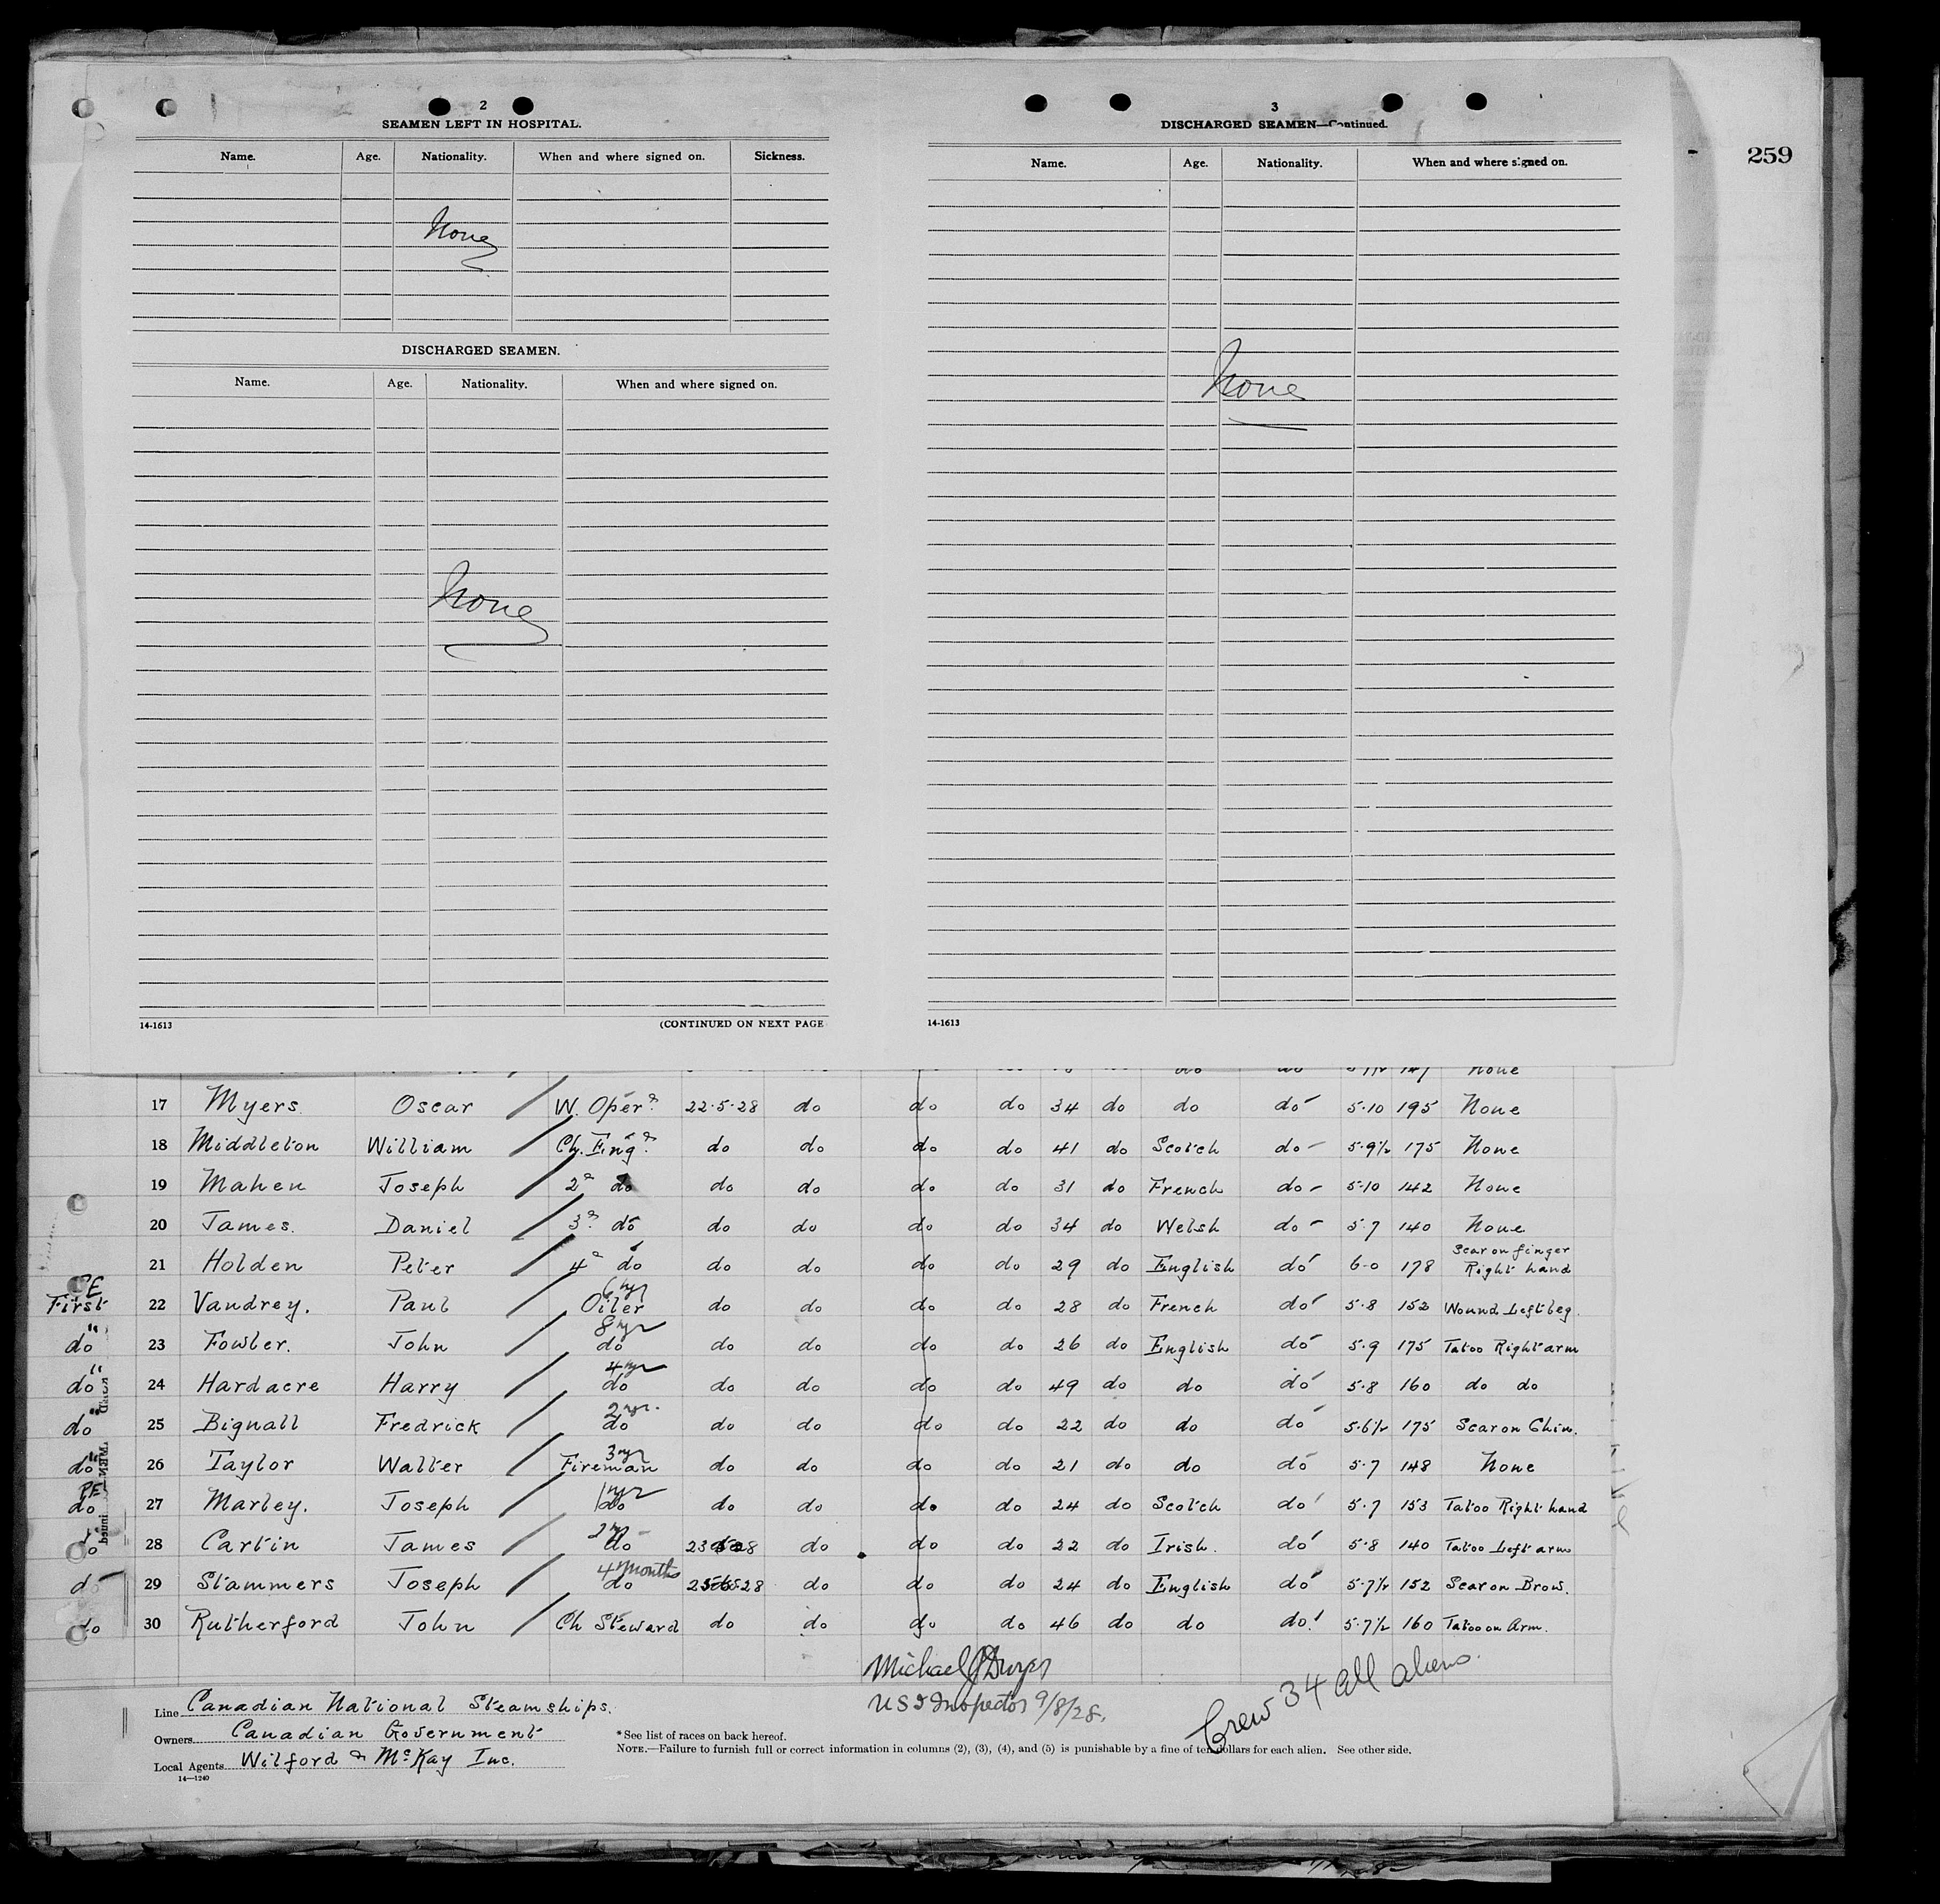 259
2
SEAMEN LEFT IN HOSPITAL.
Name. Age. Nationality. When and where signed on. Sickness.
None
DISCHARGED SEAMEN.
Name. Age. Nationality. When and where signed on.
None
14-1613 (CONTINUED ON NEXT PAGE
3
DISCHARGED SEAMEN—Continued.
Name. Age. Nationality. When and where signed on.
None
14-1613
do do None
17 Myers Oscar W. Oper. 22.5.28 do do do 34 do do do 5.10 195 None
18 Middleton William Ch. Eng. do do do do 41 do Scotch do 5.9½ 175 None
19 Mahen Joseph 2 do do do do do 31 do French do 5.10 142 None
20 James. Daniel 3 do do do do do 34 do Welsh do 5.7 140 None
21 Holden Peter 4 do do do do do 29 do English do 6-0 178 Scar on finger Right hand
PE
First 22 Vandrey. Paul 6 yr Oiler do do do do 28 do French do 5.8 152 Wound Left leg.
do " 23 Fowler. John 8 yr do do do do do 26 do English do 5.9 175 Tatoo Right arm
do " 24 Hardacre Harry 4 yr do do do do do 49 do do do 5.8 160 do do
do " 25 Bignall Fredrick 2 yr. do do do do do 22 do do do 5.6½ 175 Scar on Chin.
do " 26 Taylor Walter 3 yr Fireman do do do do 21 do do do 5.7 148 None
PE
do 27 Marley. Joseph 1 yr do do do do do 24 do Scotch do 5.7 153 Tatoo Right hand
do 28 Cartin James 2 yr do do do do 22 do Irish. do 5.8 140 Tatoo Left arm
do 29 Stammers Joseph 4 months do do do do 24 do English do 5.7½ 152 Scar on Brow.
do 30 Rutherford John Ch Steward do do do do 46 do do do 5.7½ 160 Tatoo on Arm.
Michael J Dwyer
US I Inspector 9/8/28.
Crew 34 all aliens.
Line Canadian National Steamships.
Owners Canadian Government
Local Agents Wilford & McKay Inc.
14—1240
*See list of races on back hereof.
NOTE.—Failure to furnish full or correct information in columns (2), (3), (4), and (5) is punishable by a fine of ten dollars for each alien. See other side.